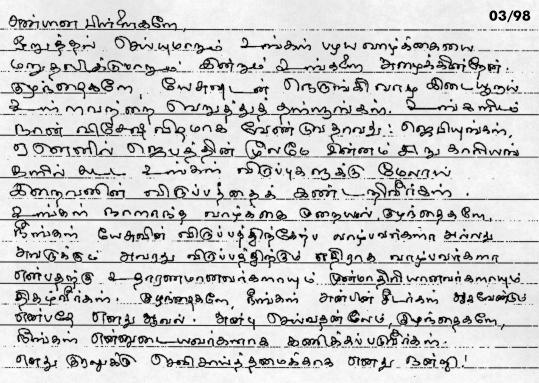 03/98
அன்பான பிள்ளைகளே,
நிறுத்தம் செய்யுமாறும் உங்கள் பழய வாழ்க்கையை
மறுதலிக்குமாறும் இன்றும் உங்களை அழைக்கின்றேன்.
குழந்தைகளே, யேசுவுடன் நெருங்கி வாழ இடையூறாய்
உள்ளவற்றை வெறுத்துத் தள்ளுங்கள். உங்களிடம்
நான் விசேஷ விதமாக வேண்டுவதாவது: ஜெபியுங்கள்,
ஏனெனில் ஜெபத்தின் மூலமே உள்ளம் சிறு காரியங்
களில் கூட உங்கள் விருப்புகளுக்கு மேலாய்
இறைவனின் விருப்பத்தைக் கண்டறிவீர்கள்.
உங்கள் நாளாந்த வாழ்க்கை முறையால் குழந்தைகளே,
நீங்கள் யேசுவின் விருப்பத்திற்கேற்ப வாழ்பவர்களா அல்லது
அவருக்கும் அவரது விருப்பத்திற்கும் எதிராக வாழ்பவர்களா
என்பதற்கு உதாரணமானவர்களாயும் முன்மாதிரியானவர்களாயும்
திகழ்வீர்கள். குழந்தைகளே, நீங்கள் அன்பின் சீடர்கள் ஆகவேண்டும்
என்பதே எனது ஆவல். அன்பு செய்வதன்மேலும், குழந்தைகளே,
நீங்கள் என்னுடையவர்களாக கணிக்கப்படுவீர்கள்.
எனது குரலுக்கு செவிசாய்த்தமைக்காக எனது நன்றி!